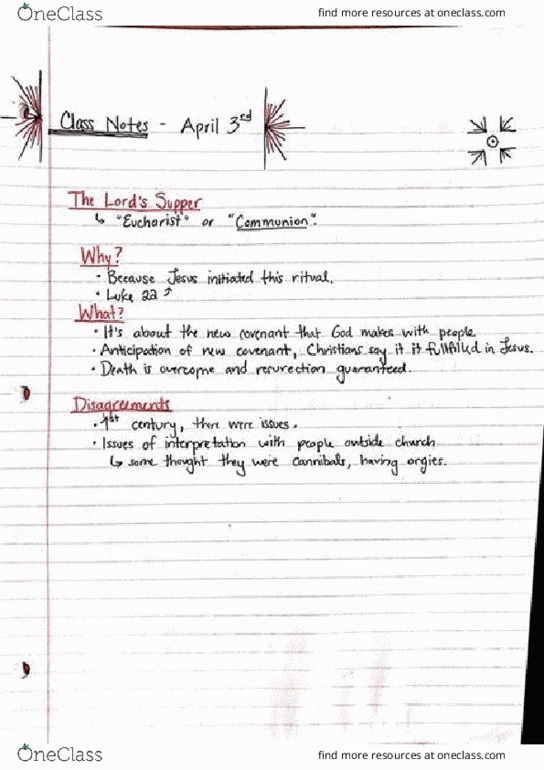 OneClass
find more resources at oneclass.com
Class Notes - April 3rd
The Lord's Supper
↳ "Eucharist" or "Communion".
Why?
• Because Jesus initiated this ritual.
• Luke 22 ↗
What?
• It's about the new covenant that God makes with people
• Anticipation of new covenant, Christians say it is fullfilled in Jesus.
• Death is overcome and resurection guaranteed.
Disagreements
• 1st century, there were issues.
• Issues of interpretation with people outside church
↳ some thought they were cannibals, having orgies.
OneClass
find more resources at oneclass.com